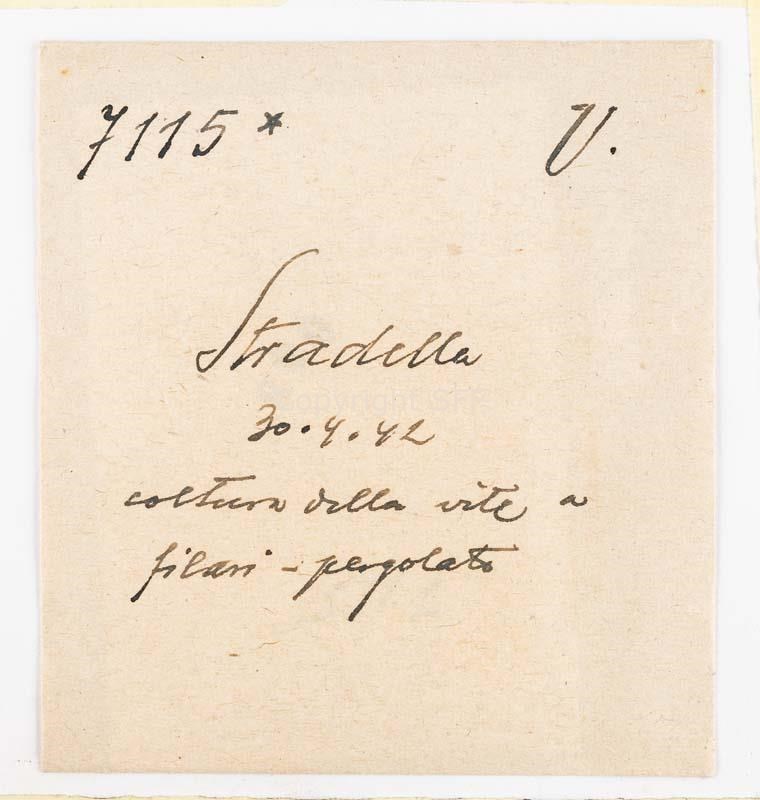 7115* V.
Stradella
30.4.42
coltura della vite a
filari - pergolato